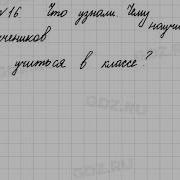 №16. Что узнал. Чему научи
чеников
учиться в классе?